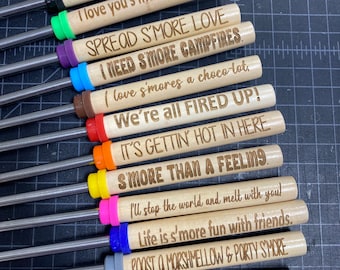 I love you s'm
SPREAD S'MORE LOVE
I NEED S'MORE CAMPFIRES
I love s'mores a choco-lot.
We're all FIRED UP!
IT'S GETTIN' HOT IN HERE
S'MORE THAN A FEELING
I'll stop the world and melt with you!
Life is s'more fun with friends.
ROAST A MARSHMELLOW & PARTY S'MORE